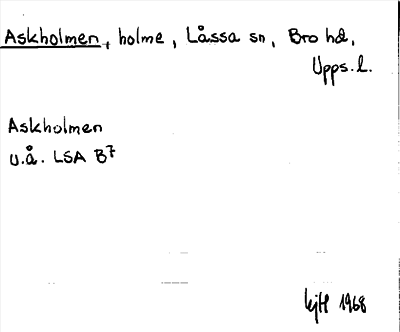 Askholmen, holme, Låssa sn, Bro hd,
Upps. l.
Askholmen
u.å. LSA B7
1968